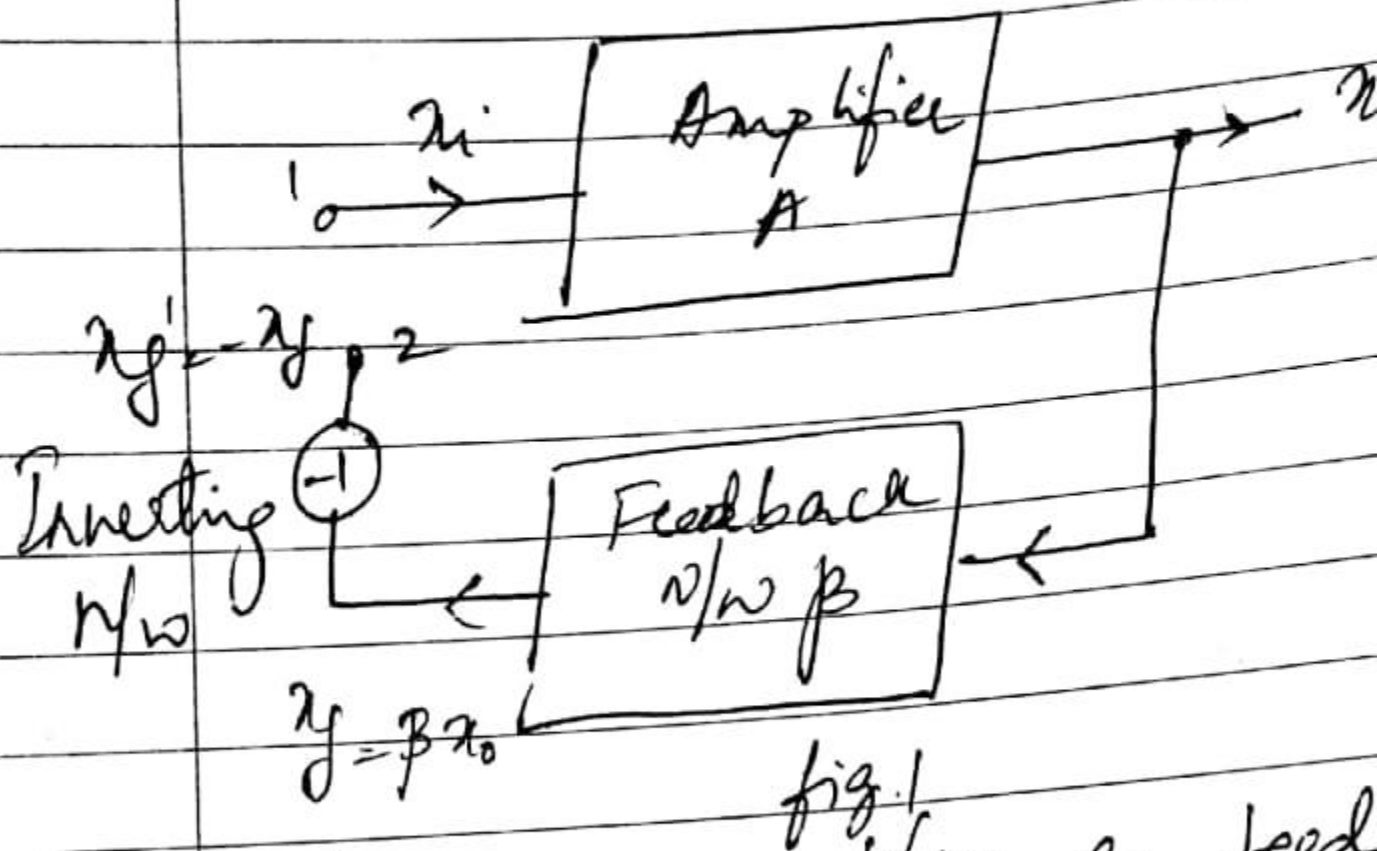 xi
Amplifier
A
x
1
xf' = -xf
2
-1
Inverting
N/w
Feedback
N/w β
xf = βx₀
fig.1